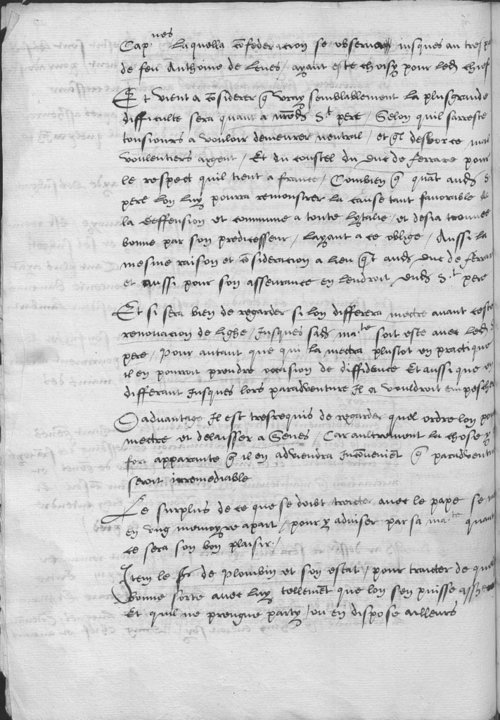 nes
Cap laquella confederacion se observera jusques au tres pas
de feu Anthoine de Leves / ayant este choisy pour led. chief
Et vient a considerer q vray semblablement la plus grande
difficulte sera quant a nred. St pere / selon quil sarreste
tousiours a vouloir demeurer neutral / et ql desbource mal
voulentiers argent / Et du coustel du duc de ferrare pour
le respect quil tient a france / Combien q quat aud. St
pere lon luy pourra remonstrer la cause tant favorable de
la deffension et commune a toute lytalie / et desia trouvee
bonne par son predicesseur / layant a ce oblige / Aussi la
mesme raison et consideracion a lieu qt aud. duc de ferrare
et aussi pour son asseurance en lendroit dud. St pere
Et si sera bien de regarder si lon differera mectre avant ceste
renovacion de lighe / jusques sad. mate soit este avec led.
pere / Pour autant que qui la mectra plustot en practique
il en pourroit prendre occasion de diffidence Et aussi que en
differant jusques lors paradventure il a vouldroit empescher
Dadvantage il est tresrequis de regarder quel ordre lon peut
mectre et delaisser a Senes / Car aultrement la chose
fort apparante q il en adviendra inconvenient q paradventure
seroit irremediable
Le surplus de ce que se doibt traicter avec le pape se
en ung memoyre apart / pour y adviser par sa mate quant
ce sera son bon plaisir /
Item le sr de Plombin et son estat / pour traicter de quelque
bonne sorte avec luy tellement que lon sen puisse asseurer
Et quil ne prengne party / ou en dispose ailleurs